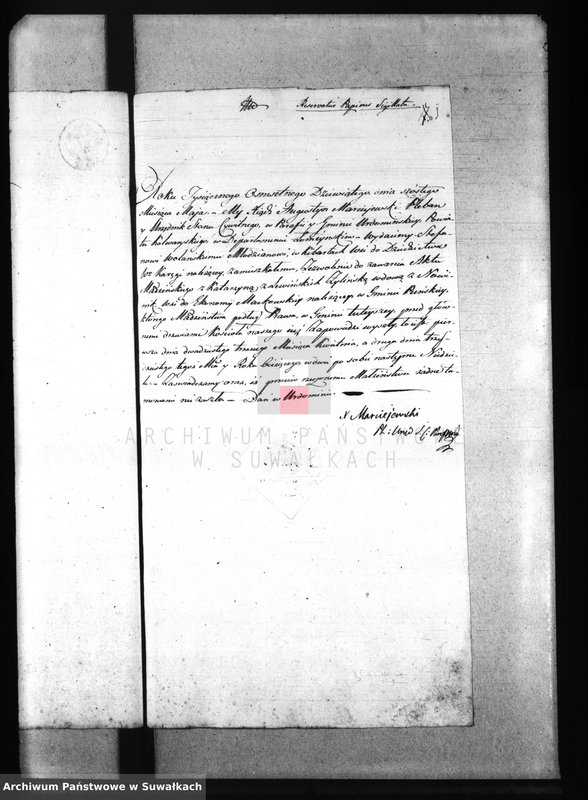 Reservatis Papieru Stęplata
Roku Tysiącznego Osmsetnego Dziewiątego dnia szóstego
Miesiąca Maja. My Xiądz Augustyn Marciejewski Pleban
y Urzędnik Stanu Cywilnego, w Parafii y Gminie Urdomińskiey, Powia-
tu Kalwaryskiego w Departamencie Łomżyńskim Wydaiemy Stefa-
nowi Wolanikemu Młodzianowi, w Kibartach Wsi do Dziedzictwa
należącey, zamieszkałemu, Zezwolenie do zawarcia Aktu
Małżeńskiego z Katarzyną z Lewińskich wdową z
Wsi do Ekonomij należącego w Gminie
którego Małżeństwa podług Prawa, w Gminie tuteyszey przed głów-
nemi drzwiami Kościoła naszego iuż Zapowiedzi wyszły to iest pier-
wsza dnia dwudziestego trzeciego Miesiąca Kwietnia, a druga dnia trzy-
dziestego tegoż Mca y Roku bieżącego w dwie po sobie następne Niedzie-
le. Zaświadczamy oraz, iż przeciw rzeczonemu Małżeństwu żadne ta-
mowanie nie zaszło — Dan w Urdominie.
X Marciejewski
ARCHIWUM PAŃSTWOWE
W SUWAŁKACH
Archiwum Państwowe w Suwałkach